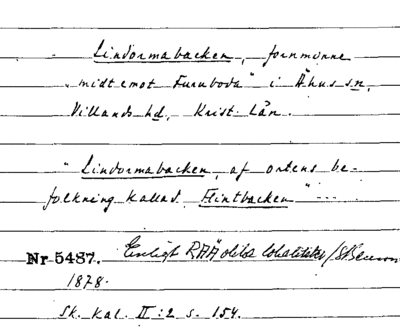 Lindormabacken, fornminne
"midt emot Furuboda" i Åhus sn,
Villands hd, Krist. län.
"Lindormabacken, af ortens be-
folkning kallad Flintbacken" ---
Nr 5487. Enligt RAÄ
1878.
Sk. kal. II:2 s. 154.